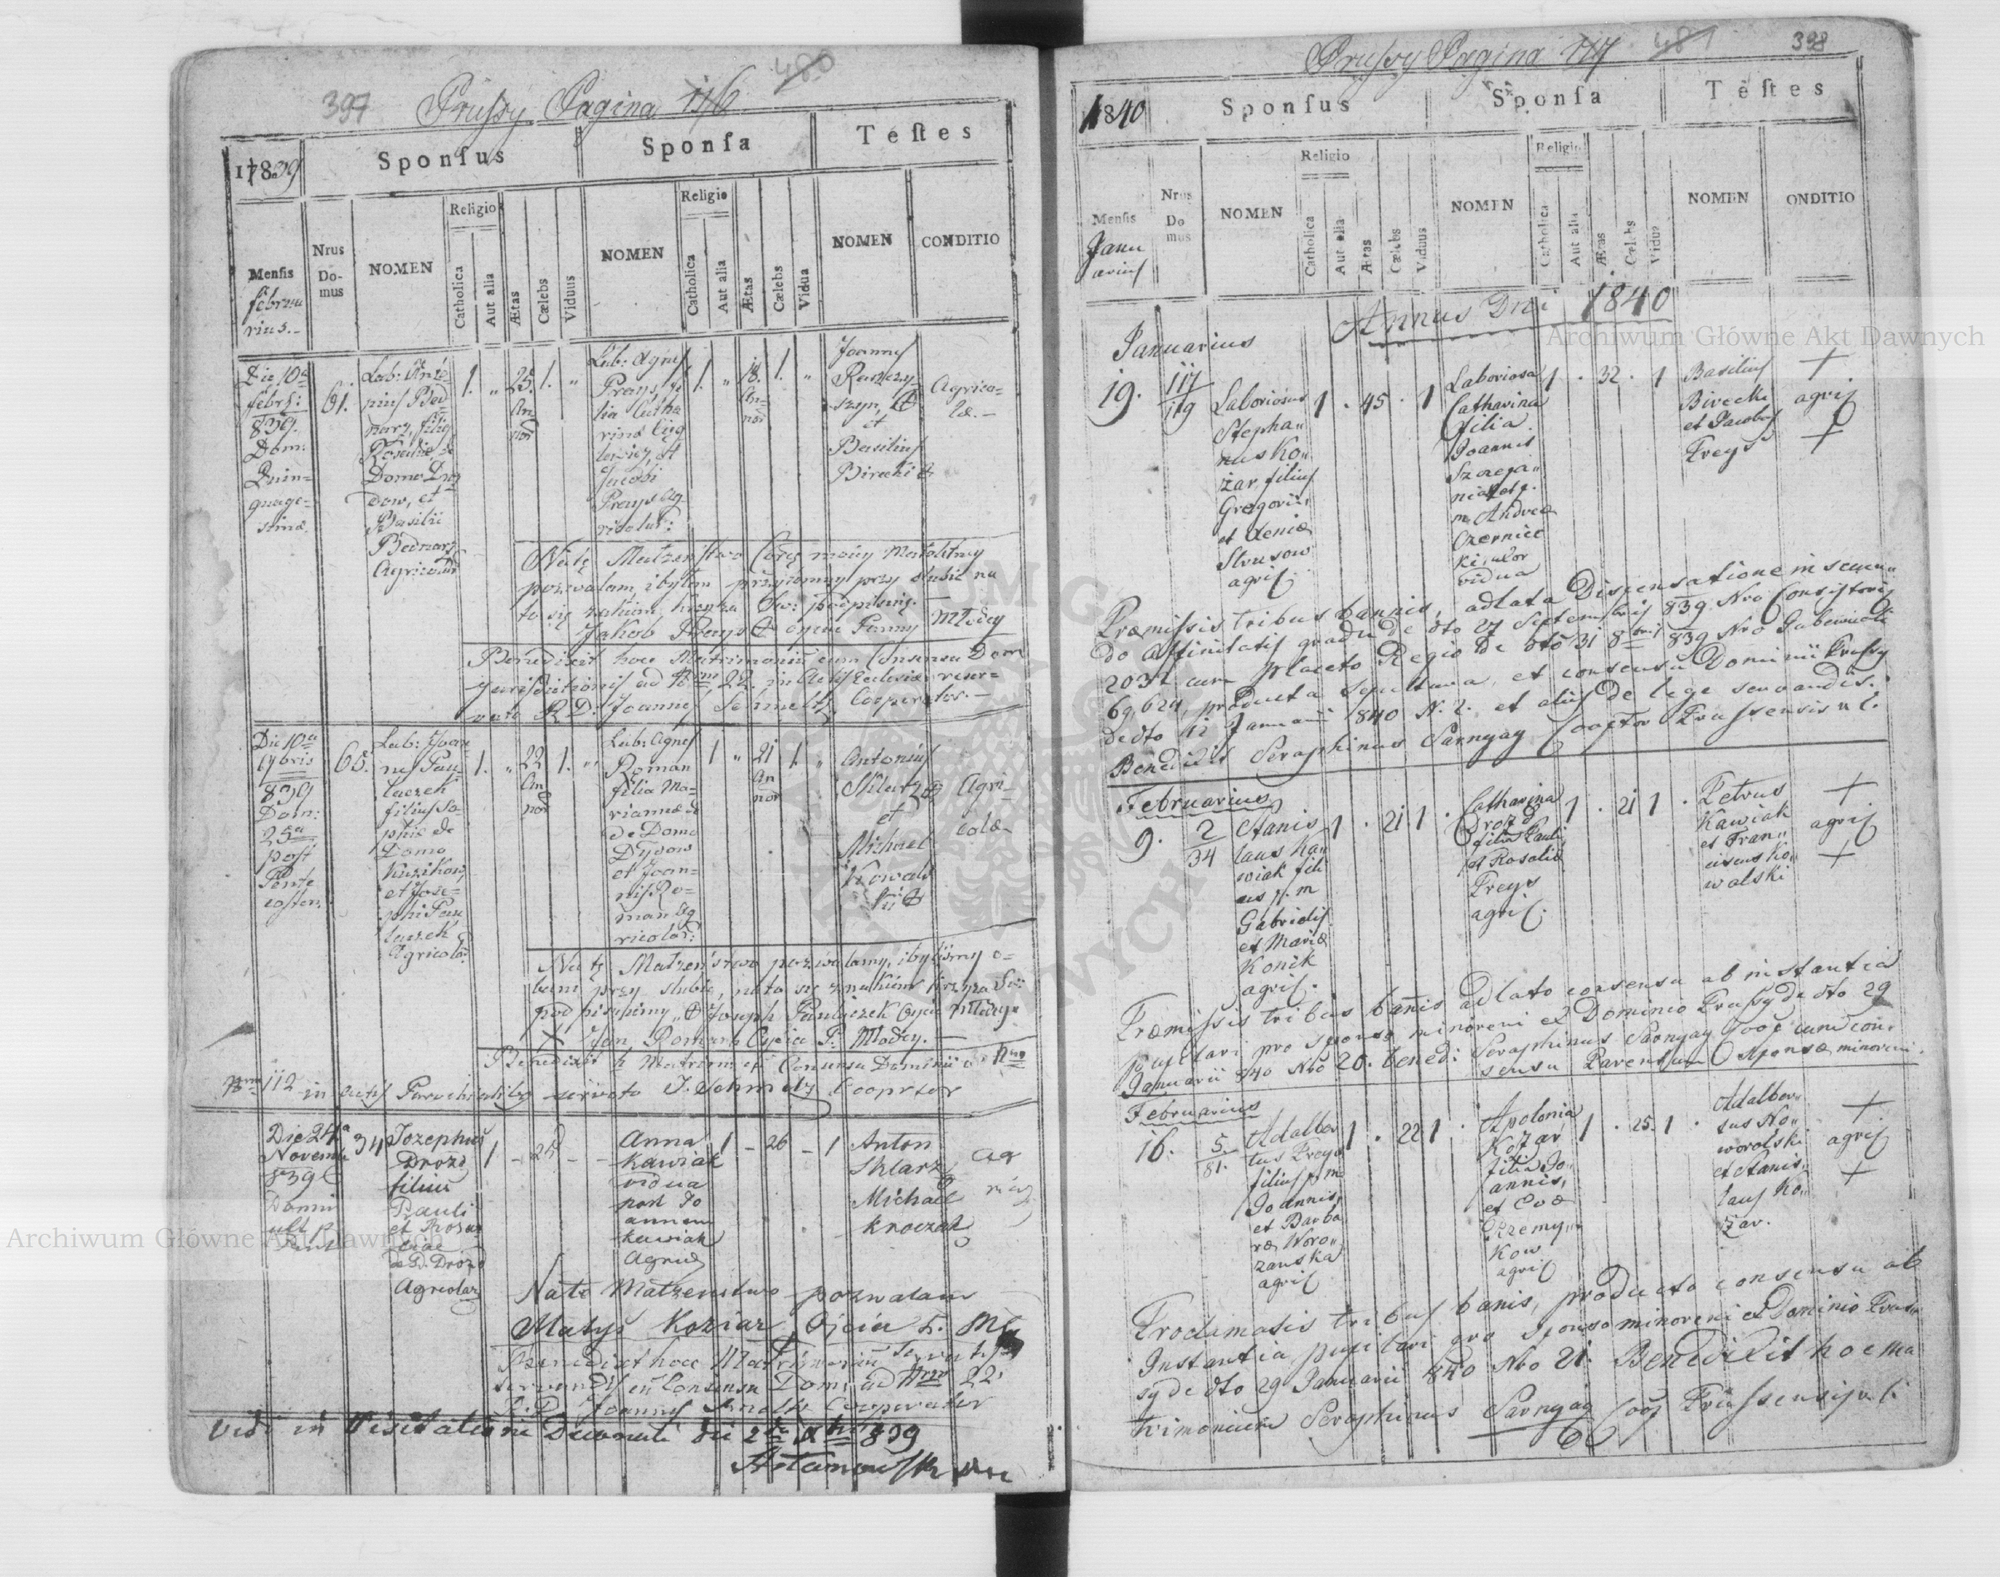 397 Prussy Pagina 116 480
17839
Sponſus
Sponſa
Teſtes
Menſis
februa
rius.-
Nrus
Do-
mus
NOMEN
Religio
Catholica
Aut alia
Ætas
Cælebs
Viduus
NOMEN
Religio
Catholica
Aut alia
Ætas
Cælebs
Vidua
NOMEN
CONDITIO
Die 10a
febr:
839.
Dom:
Quin-
quage-
simæ
61.
Lab:
Bed
narz, filius
Rosaliæ de
Domo Droz
dow, et
Basilii
Bednarz
Agricolar
1. „ 25. 1. „
An
nor
Lab: Agnes
Preys, fi
lia Catha
rinæ
et
Jacobi
Preys Ag
ricolar:
1. „ 18. 1. „
An-
nor
Joannes
et
Basilius
Birecki
Agrico-
læ.-
Na te Małzeństwo Córcę moiey Małoletniey
pozwalam, i byłem przytomny przy slubie na
to się znakiem krzyża Sw: podpisuię.
Jakob Preys oyciec Panny Młodey
Benedixit hoce Matrimoniũ cum Consensu Dom
Jurisdictionis ad Nrm 22. in Actis Ecclesiæ reser-
vato R.D. Joannes Schmeltz Cooperator.-
Die 10a
9bris
839
Dom:
25a
post
Pente
costen.
65.
Lab: Joan
nes Pau
luczek
filius So
phiæ de
Domo
et Jose-
phi Pau
luczek
Agricolar
1. „ 22 1. „
An
nor
Lab: Agnes
Roman
filia Ma-
riannæ
de Domo
Dydow
et Joan-
nis Ro-
man Ag
ricolar:
1 „ 21 1. „
An
nor
Antonius
Sklarz
et
Michael
Kowals
ki
Agri-
colæ
Na te Małzeństwo pozwalamy, i bylismy o-
becni przy slubie, na to się znakiem krzyża Sw:
podpisuiemy, Joseph Paulyczek Oyciec młodego
X Jan Roman Oyciec P: Młodey.
Benedixit h Matrim cũ Consensu Dominii ad Nrm
Nrm 112 in actis Parochialibus servato J. Schmeltz Cooprtor
Die 24a
Novemb
839
Domin
ult p
Pent
34
Jozephus
Drozd
filius
Pauli
et Rosa
liae
de D. Drozd
Agricolar
1 - 24 - -
Anna
Kawiak
vidua
post Jo
annem
Kawiak
Agricol
1 - 26 - 1
Anton
Sklarz
Michael
Kroczak
Ag
ric
Na te Małzenstwo pozwalam
Matys Koziar Oyciec P. Mł
Benedixit hoce Matrimonium servatis
servandis cũ Consensu Dom. ad Nrm 22.
R.D. Joannes Cooperator
Vidi in Visitatione Decanali die 2da Xbris 839
Prussy Pagina 117 481 398
1840
Sponſus
Sponſa
Teſtes
Menſis
Janu
arius
Nrus
Do
mus
NOMEN
Religio
Catholica
Aut alia
Ætas
Cælebs
Viduus
NOMEN
Religio
Catholica
Aut alia
Ætas
Cælebs
Vidua
NOMEN
ONDITIO
Annus Dni 1840
Januarius
19.
117
119
Laboriosus
Stepha„
nus Ko„
żar, filius
Gregorii
et Xeniæ
Strusow
agric.
1 . 45 . 1
Laboriosa
Catharina
filia
Joannis
Andreæ
Czernec
ki, uxor
vidua
1 . 32 . 1
Basilius
Birecki
et Jacobus
Preys
+
agric
+
Præmissis tribus bannis, adlata Dispensatione in secun„
do Affinitatis gradu de dto 27 Septembris 839 Nro Consistorii
2031 cum placeto Regio de dto 31 8bris 839 Nro Gubernii
69,624, producta sepultura, et consensu Dominii Prussy
de dto 12 Januarii 840 N. 2. et aliis de lege servandis.
Benedixit Seraphinus Sarnyay Cooptor Prussensis r. l.
Februarius
9.
2
34
Stanis
laus Ka„
wiak fili
us p. m
Gabrielis
et Mariæ
Konik
agric.
1 . 21 1 .
Catharina
Drozd
filia Pauli
et Rosaliæ
Preys
agric.
1 . 21 1 .
Petrus
Kawiak
et Fran„
ciscus Ko„
walski
+
agric
+
Præmissis tribus banis adlato consensu ab instantia
pupillari pro sponso minoreni et Dominio Prussy de dto 29
Januarii 840 Nbo 20. bened: Seraphinus Sarnyay Coop cum con„
sensu Parentum Sponsæ minoreni.
Februarius
16.
5
81.
Adalber
tus Preys
filius p m
Joannis,
et Barba
ræ Woro„
zanska
agric
1 . 22 1 .
Apolonia
Kozar
filia Jo„
annis,
et Evæ
Przemy„
kow
agric
1 . 25. 1 .
Adalber„
tus No„
worolski
et Stanis„
laus Ko„
zar.
+
agric
+
Proclamatis tribus banis, producto consensu ab
Instantia pupilari pro sponso minoreni et Dominio Prus
sy de dto 29 Januarii 840 Nbo 21. Benedixit hoc ma
trimonium Seraphinus Sarnyay Coop Prussensis r. l.
Archiwum Główne Akt Dawnych
Archiwum Główne Akt Dawnych